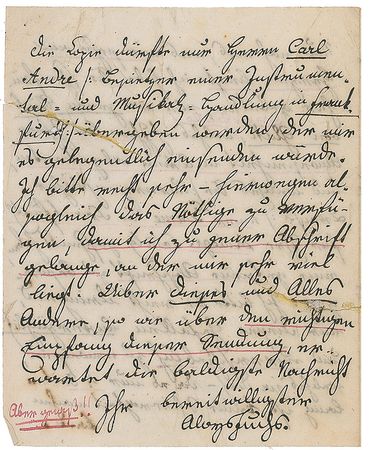 die Copie dürfte nur Herrn Carl
Andre /: Besitzer einer Instrumen-
tal- und Musikal-Handlung in Frank-
furt :/ übergeben werden, der mir
es gelegentlich einsenden würde.
Ich bitte recht sehr – hierwegen al-
sogleich das Nöthige zu verfü-
gen, damit ich zu jener Abschrift
gelange, an der mir sehr viel
liegt. Über dieses und Alles
Andere, so wie über den richtigen
Empfang dieser Sendung, er-
wartet die baldigste Nachricht
Ihr bereitwilligster
Aber gewiß!!
Aloys Fuchs.